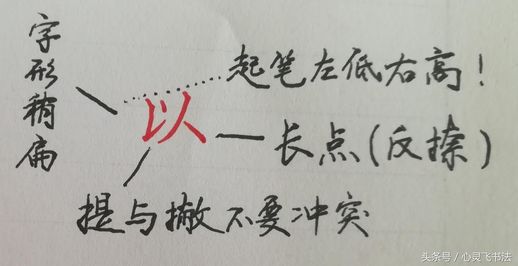 字形稍扁
起笔左低右高！
以
长点(反捺)
提与撇不要冲突
头条号／心灵飞书法